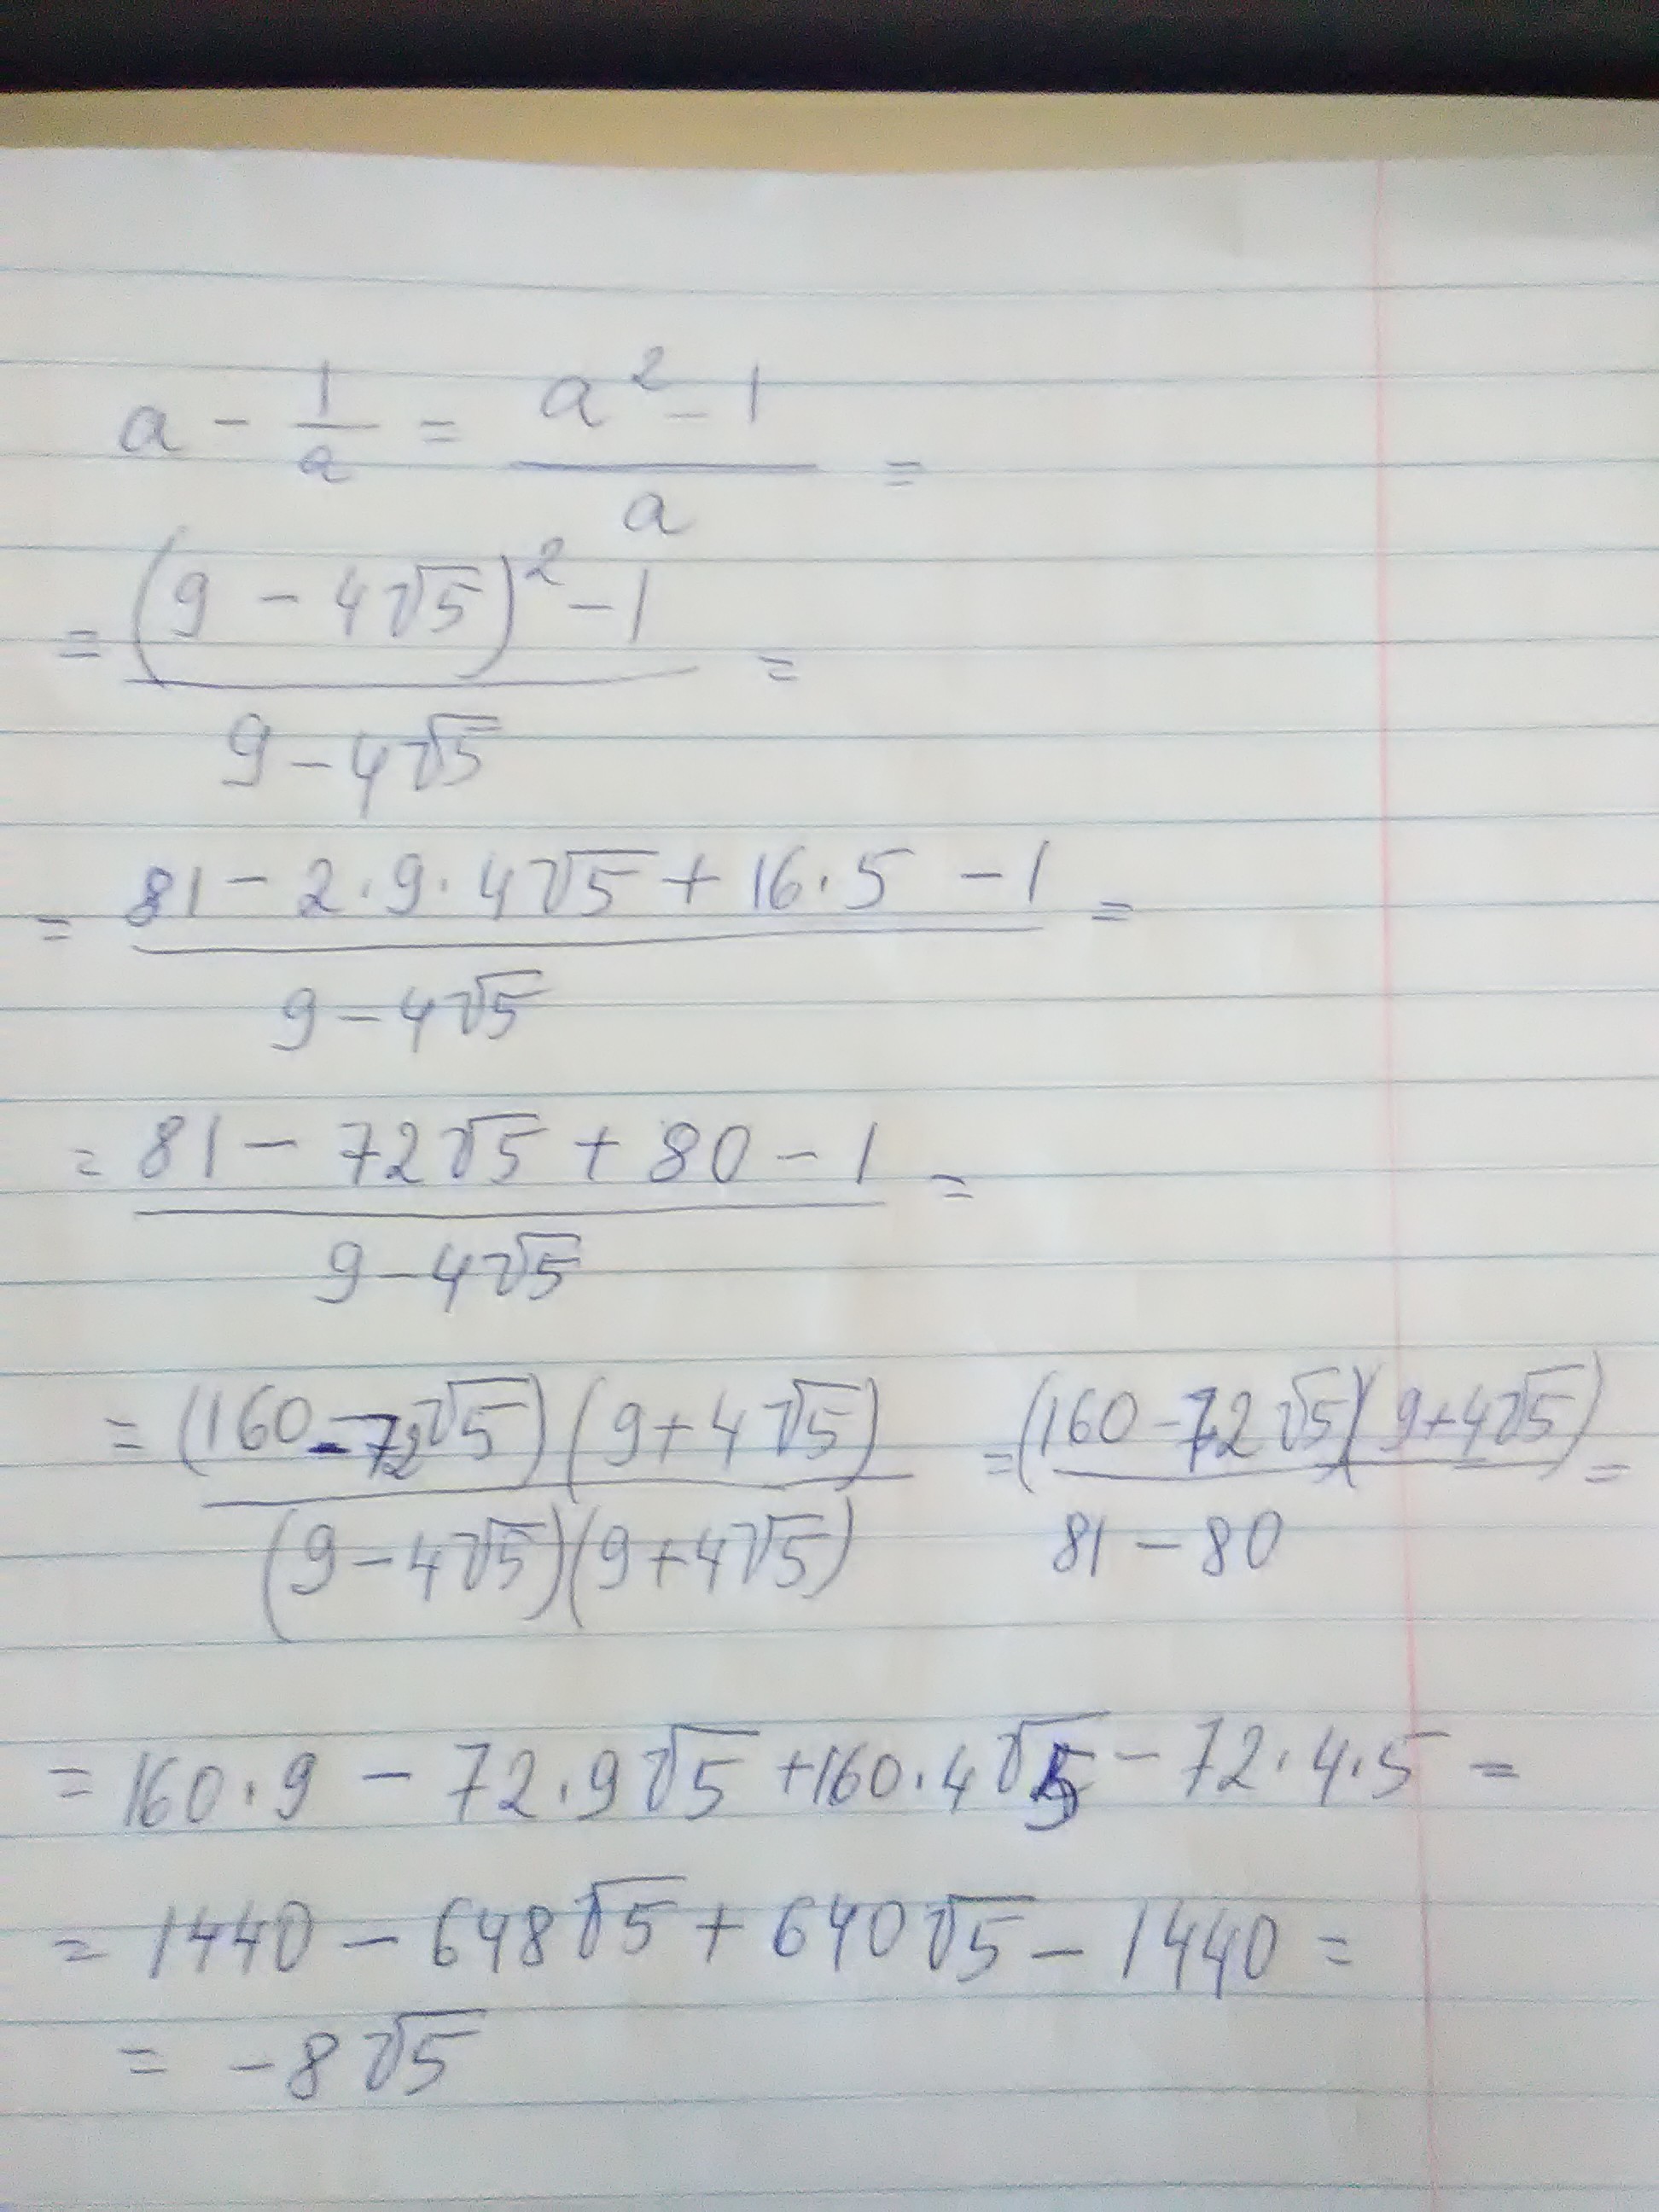 a - 1/a = (a² - 1)/a =
= ((9 - 4√5)² - 1)/(9 - 4√5) =
= (81 - 2·9·4√5 + 16·5 - 1)/(9 - 4√5) =
= (81 - 72√5 + 80 - 1)/(9 - 4√5) =
= (160 - 72√5)(9 + 4√5)/((9 - 4√5)(9 + 4√5)) = (160 - 72√5)(9 + 4√5)/(81 - 80) =
= 160·9 - 72·9√5 + 160·4√5 - 72·4·5 =
= 1440 - 648√5 + 640√5 - 1440 =
= -8√5